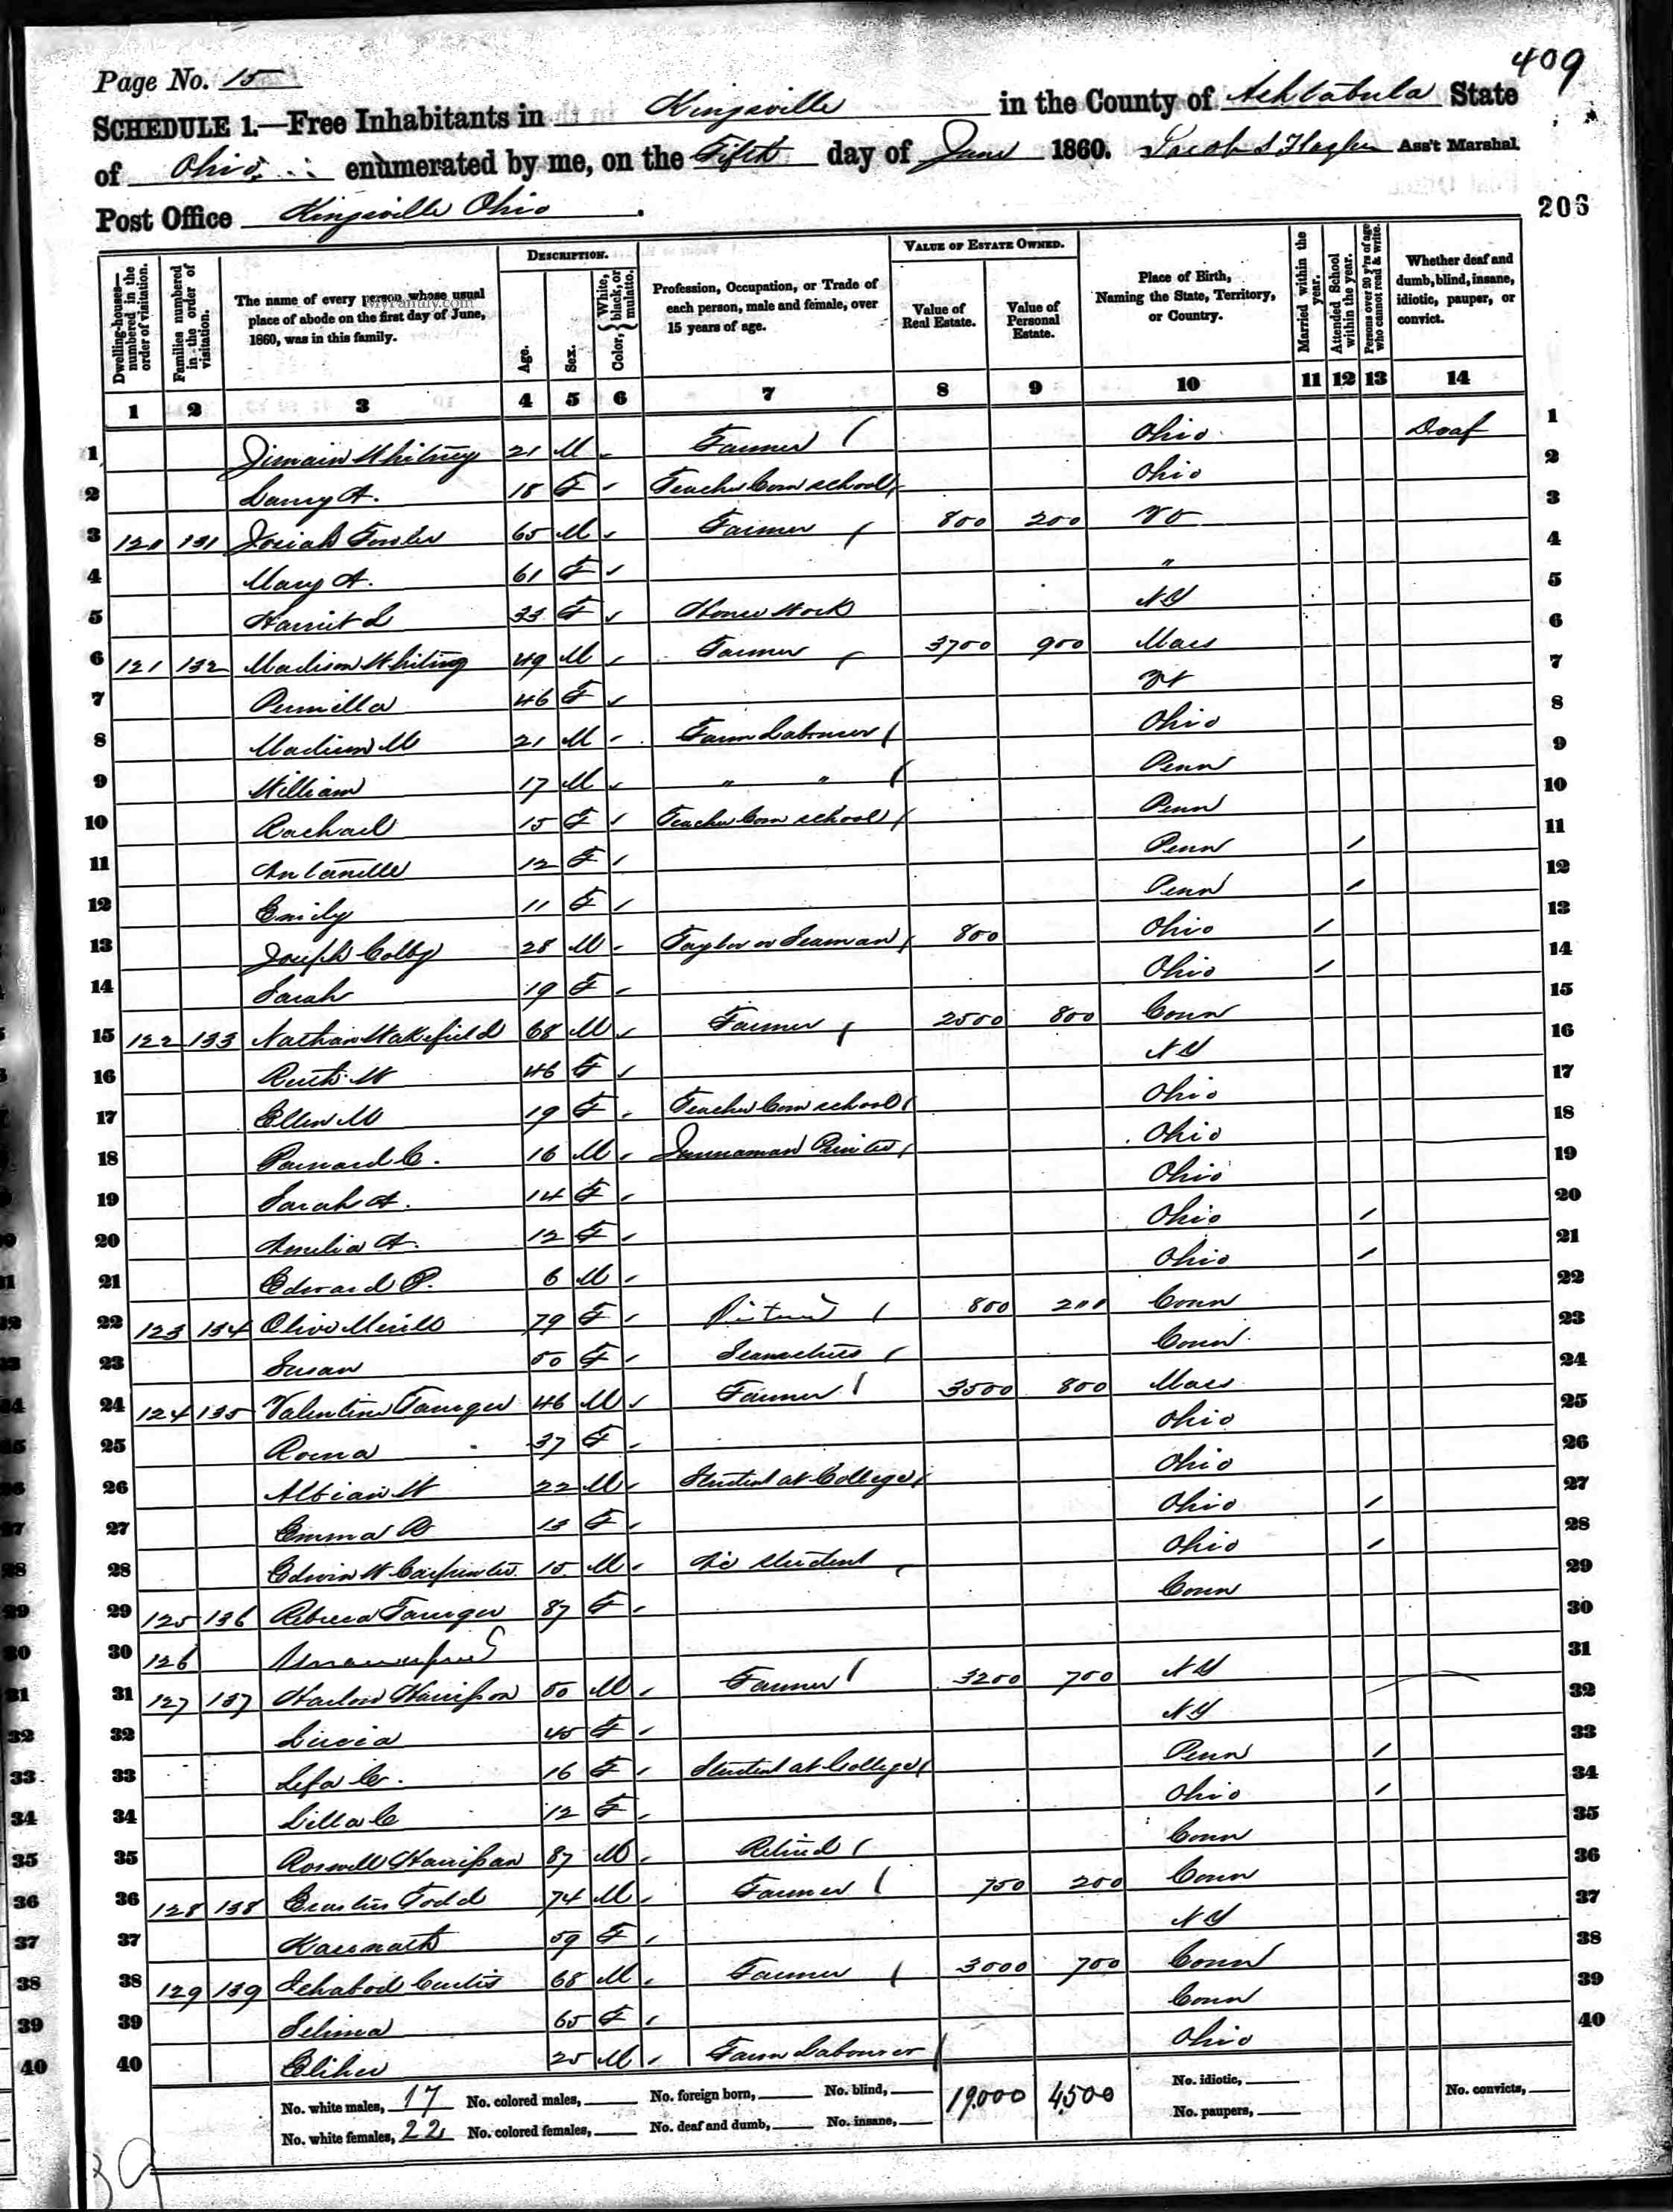 409
Page No. 15
SCHEDULE 1.—Free Inhabitants in Kingsville in the County of Ashtabula State
of Ohio enumerated by me, on the Fifth day of June 1860. Jacob S Ass't Marshal.
Post Office Kingsville Ohio.
206
Dwelling-houses—numbered in the order of visitation.
Families numbered in the order of visitation.
The name of every person whose usual place of abode on the first day of June, 1860, was in this family.
DESCRIPTION.
Age.
Sex.
Color, { White, black, or mulatto.
Profession, Occupation, or Trade of each person, male and female, over 15 years of age.
VALUE OF ESTATE OWNED.
Value of Real Estate.
Value of Personal Estate.
Place of Birth, Naming the State, Territory, or Country.
Married within the year.
Attended School within the year.
Persons over 20 y'rs of age who cannot read & write.
Whether deaf and dumb, blind, insane, idiotic, pauper, or convict.
1 2 3 4 5 6 7 8 9 10 11 12 13 14
1 Whitney 21 M Farmer Ohio Deaf 1
2 A. 18 F Teacher Com school Ohio 2
3 120 131 Josiah Fowler 65 M Farmer 800 200 Vt 3
4 Mary A. 61 F " 4
5 Harriet L 33 F House Work NY 5
6 121 132 Madison Whiting 49 M Farmer 3700 900 Mass 6
7 Permilla 46 F Vt 7
8 Madison M 21 M Farm Labourer Ohio 8
9 William 17 M " " Penn 9
10 Rachael 15 F Teacher Com school Penn 10
11 12 F Penn / 11
12 Emily 11 F Penn / 12
13 Joseph Colby 28 M Saylor or Seaman 800 Ohio / 13
14 Sarah 19 F Ohio / 14
15 122 133 Nathan Wakefield 68 M Farmer 2500 800 Conn 15
16 Ruth W 46 F NY 16
17 Ellen M 19 F Teacher Com school Ohio 17
18 C. 16 M Printer Ohio 18
19 Sarah A. 14 F Ohio 19
20 Amelia A. 12 F Ohio / 20
21 Edward P. 6 M Ohio / 21
22 123 134 Olive Merills 79 F Retired 800 200 Conn 22
23 Susan 50 F Seamstress Conn 23
24 124 135 Valentine 46 M Farmer 3500 800 Mass 24
25 37 F Ohio 25
26 Albian W 22 M Student at College Ohio 26
27 Emma R 13 F Ohio / 27
28 Edwin W Carpenter 15 M Do student Ohio / 28
29 125 136 Rebecca 87 F Conn 29
30 126 Unoccupied 30
31 127 137 Harlow Harrison 50 M Farmer 3200 700 NY 31
32 Lucia 45 F NY 32
33 C. 16 F Student at College Penn / 33
34 Lilla C 12 F Ohio / 34
35 Roswell Harrison 87 M Retired Conn 35
36 128 138 Erastus Todd 74 M Farmer 750 200 Conn 36
37 59 F NY 37
38 129 139 Ichabod Curtis 68 M Farmer 3000 700 Conn 38
39 Selima 65 F Conn 39
40 Elihu 25 M Farm Labourer Ohio 40
No. white males, 17 No. colored males, No. foreign born, No. blind, 19,000 4500 No. idiotic, No. convicts,
No. white females, 22 No. colored females, No. deaf and dumb, No. insane, No. paupers,
39